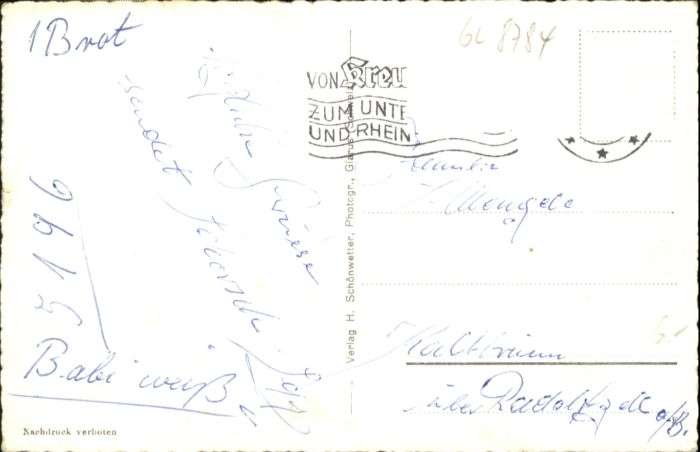 1 Brot
Herzliche Grüsse
sendet
5199
Babi weiß
Nachdruck verboten
Verlag H. Schönwetter, Photogr., Glarus
GL 8784
VON Kreu
ZUM UNTE
UND RHEIN
Familie
Mengele
Kaltbrunn
über Radolfzell a/B.